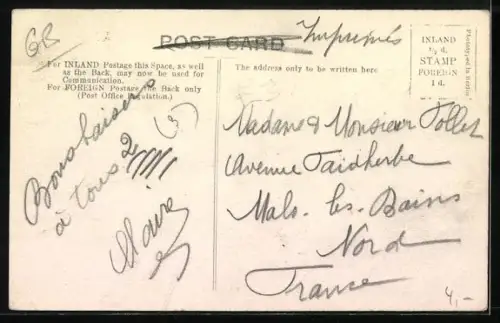 GB
POST CARD
Imprimés
For INLAND Postage this Space, as well
as the Back, may now be used for
Communication.
For FOREIGN Postage the Back only
(Post Office Regulation.)
The address only to be written here
INLAND
½d.
STAMP
FOREIGN
1d.
Bons baisers
à tous 2
(3)
Madame & Monsieur Follet
Avenue Faidherbe
Malo. les. Bains
Nord
France
4,-